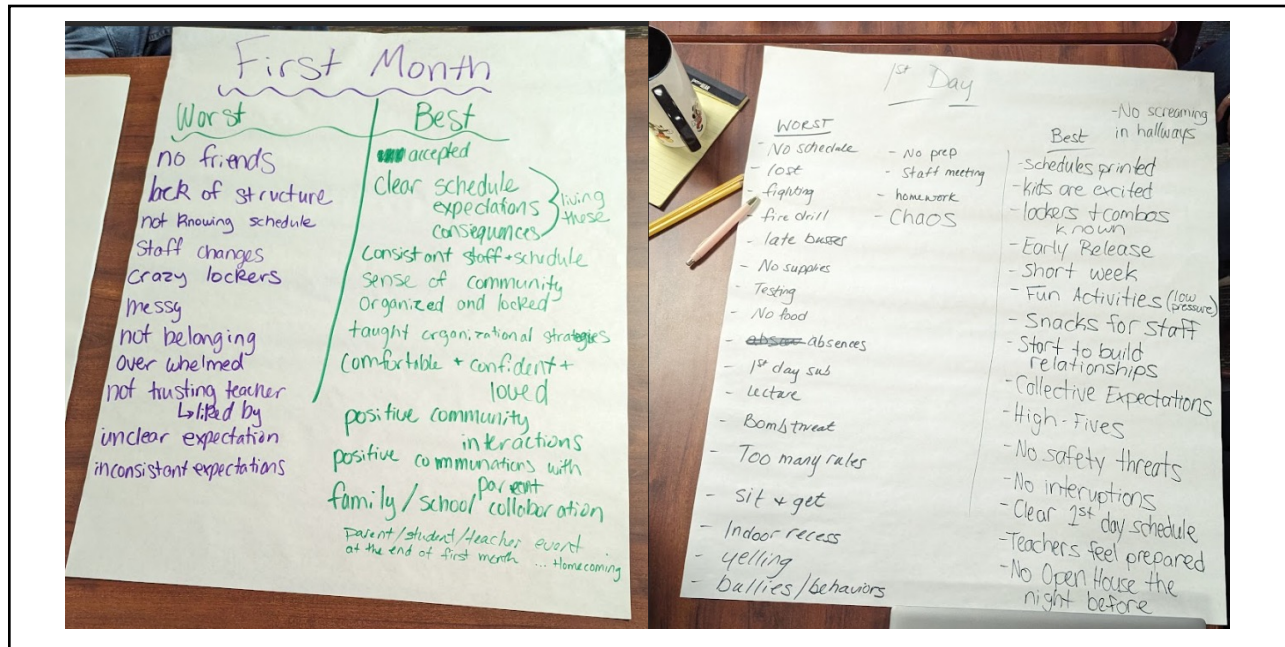 First Month
Worst
no friends
lack of structure
not knowing schedule
Staff changes
Crazy lockers
messy
not belonging
over whelmed
not trusting teacher
↳liked by
unclear expectation
inconsistant expectations
Best
accepted
Clear schedule
expectations
consequences
living
these
Consistant staff + schedule
sense of community
organized and locked
taught organizational strategies
comfortable + confident +
loved
positive community
interactions
positive communations with
parent
family/school collaboration
Parent/student/teacher event
at the end of first month ... Homecoming
1st Day
WORST
- No schedule
- lost
- fighting
- fire drill
- late busses
- No supplies
- Testing
- No food
- absences
- 1st day sub
- Lecture
- Bomb threat
- Too many rules
- sit + get
- Indoor recess
- yelling
- bullies/behaviors
- No prep
- Staff meeting
- homework
- CHAOS
- No screaming
in hallways
Best
- Schedules printed
- kids are excited
- lockers + combos
known
- Early Release
- Short week
- Fun Activities (low
pressure)
- Snacks for staff
- Start to build
relationships
- Collective Expectations
- High-Fives
- No safety threats
- No interuptions
- Clear 1st day schedule
- Teachers feel prepared
- No Open House the
night before